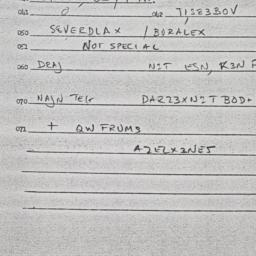 061 0 062 71583BOV
050 SEVERDLAX / BORALEX
052 NOT SPECIAL
060 DRAJ N2T ESN, R3N F
070 NAJN TEKr DAR23XN2T BOD+
072 + QW FRUMS
A2ELX2NE5